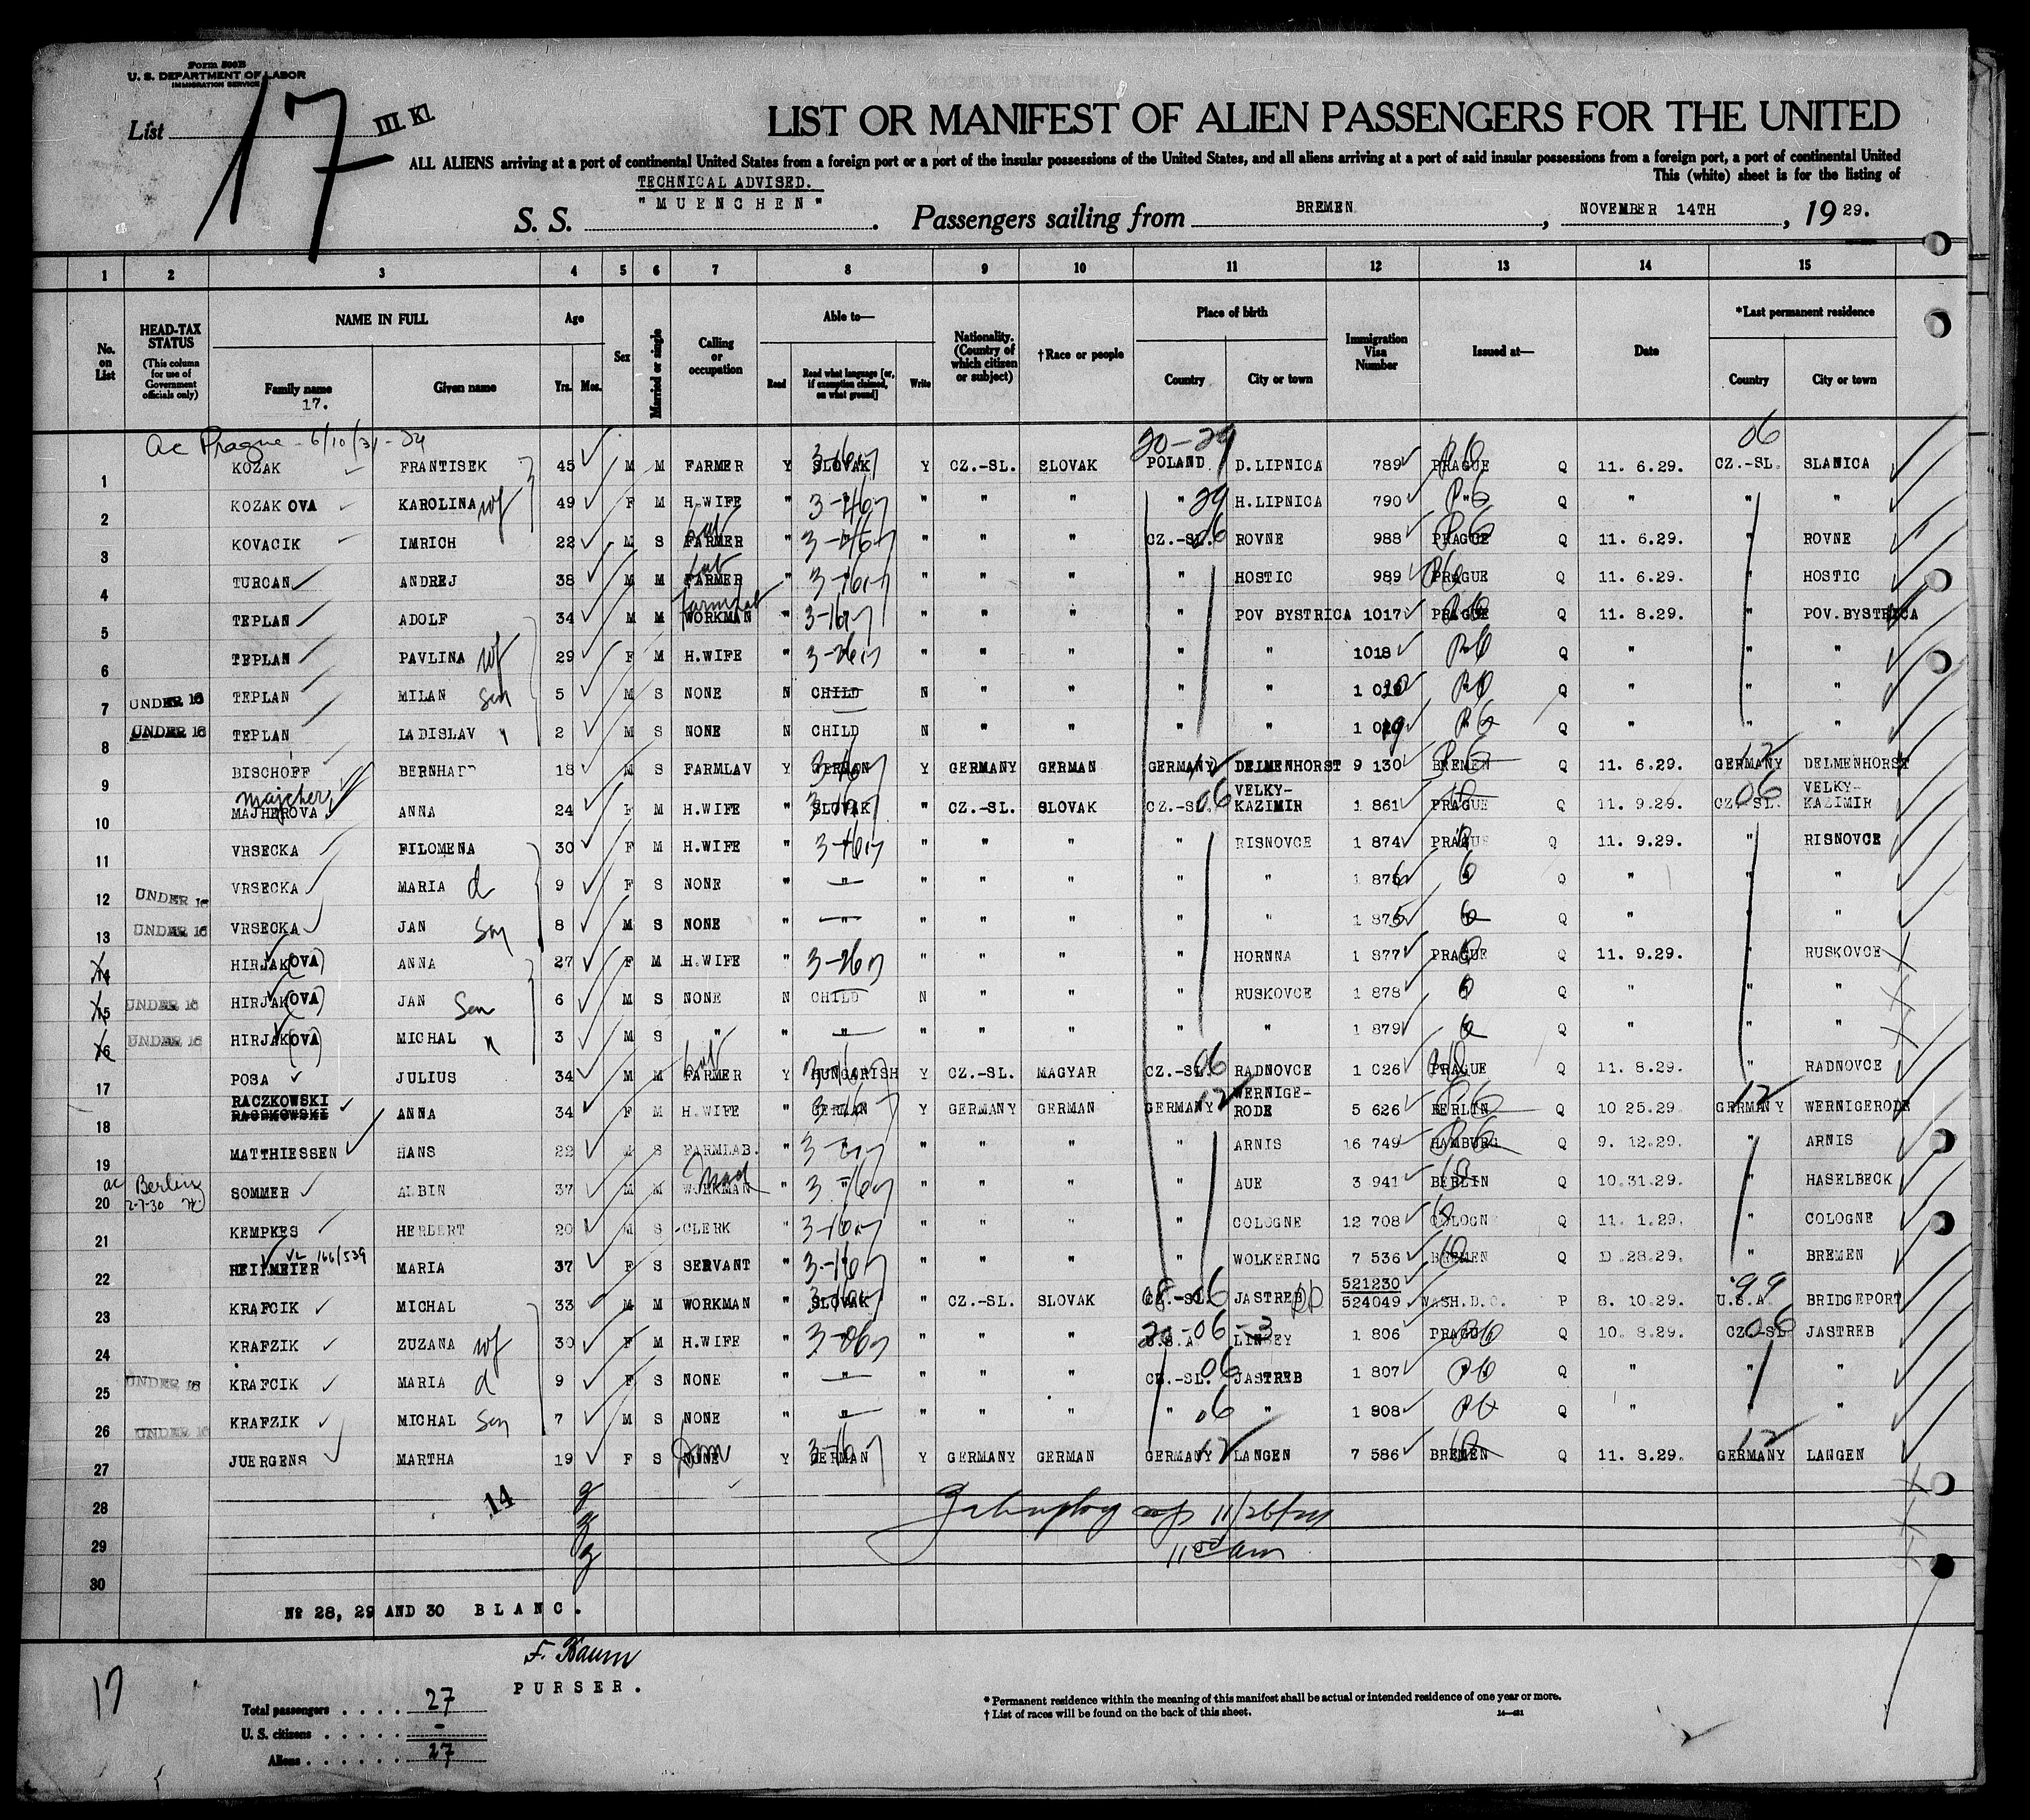 Form 500B
U. S. DEPARTMENT OF LABOR
IMMIGRATION SERVICE
List 17 III. Kl.
LIST OR MANIFEST OF ALIEN PASSENGERS FOR THE UNITED
ALL ALIENS arriving at a port of continental United States from a foreign port or a port of the insular possessions of the United States, and all aliens arriving at a port of said insular possessions from a foreign port, a port of continental United
This (white) sheet is for the listing of
TECHNICAL ADVISED.
S. S. "MUENCHEN". Passengers sailing from BREMEN, NOVEMBER 14TH, 19 29.
1 2 3 4 5 6 7 8 9 10 11 12 13 14 15
No. on List HEAD-TAX STATUS (This column for use of Government officials only) NAME IN FULL Family name Given name Age Yrs. Mos. Sex Married or single Calling or occupation Able to— Read Read what language [or, if exemption claimed, on what ground] Write Nationality. (Country of which citizen or subject) †Race or people Place of birth Country City or town Immigration Visa Number Issued at— Date *Last permanent residence Country City or town
17.
ac Prague - 6/10/31 - 20-29 06
1 KOZAK FRANTISEK 45 M M FARMER Y SLOVAK Y CZ.-SL. SLOVAK POLAND D.LIPNICA 789 PRAGUE Q 11. 6.29. CZ.-SL. SLANICA
2 KOZAK OVA KAROLINA wf 49 F M H.WIFE " " " " " " 29 H.LIPNICA 790 " Q " " "
3 KOVACIK IMRICH 22 M S FARMER " " " " " CZ.-SL. 06 ROVNE 988 PRAGUE Q 11. 6.29. " ROVNE
4 TURCAN ANDREJ 38 M M FARMER " " " " " " HOSTIC 989 PRAGUE Q 11. 6.29. " HOSTIC
5 TEPLAN ADOLF 34 M M Farmlab WORKMAN " " " " " " POV BYSTRICA 1017 PRAGUE Q 11. 8.29. " POV.BYSTRICA
6 TEPLAN PAVLINA wf 29 F M H.WIFE " " " " " " " 1018 " Q " " "
7 UNDER 16 TEPLAN MILAN son 5 M S NONE N CHILD N " " " " Q " " "
8 UNDER 16 TEPLAN LADISLAV " 2 M S NONE N CHILD N " " " " Q " " "
9 BISCHOFF BERNHARD 18 M S FARMLAV Y GERMAN Y GERMANY GERMAN GERMANY DELMENHORST 9 130 BREMEN Q 11. 6.29. GERMANY 12 DELMENHORST
10 Majcher MAJHEROVA ANNA 24 F M H.WIFE " SLOVAK " CZ.-SL. SLOVAK CZ.-SL. 06 VELKY-KAZIMIR 1 861 PRAGUE Q 11. 9.29. CZ.-SL. 06 VELKY-KAZIMIR
11 VRSECKA FILOMENA 30 F M H.WIFE " " " " " " RISNOVCE 1 874 PRAGUE Q 11. 9.29. " RISNOVCE
12 UNDER 16 VRSECKA MARIA d 9 F S NONE " " " " " " " 1 875 Q " " "
13 UNDER 16 VRSECKA JAN son 8 M S NONE " " " " " " " 1 876 Q " " "
14 HIRJAK(OVA) ANNA 27 F M H.WIFE " " " " " " HORNNA 1 877 PRAGUE Q 11. 9.29. " RUSKOVCE
15 UNDER 16 HIRJAK(OVA) JAN Son 6 M S NONE N CHILD N " " " RUSKOVCE 1 878 Q " " "
16 UNDER 16 HIRJAK(OVA) MICHAL " 3 M S " " " " " " " " 1 879 Q " " "
17 POSA JULIUS 34 M M FARMER Y HUNGARISH Y CZ.-SL. MAGYAR CZ.-SL. 06 RADNOVCE 1 026 PRAGUE Q 11. 8.29. " RADNOVCE
18 RACZKOWSKI ANNA 34 F M H.WIFE " GERMAN Y GERMANY GERMAN GERMANY 12 WERNIGE-RODE 5 626 BERLIN Q 10 25.29. GERMANY 12 WERNIGERODE
19 MATTHIESSEN HANS 22 M S FARMLAB. " " " " " " ARNIS 16 749 HAMBURG Q 9. 12.29. " ARNIS
20 ac Berlin 2-7-30 SOMMER ALBIN 37 M M WORKMAN " " " " " " AUE 3 941 BERLIN Q 10.31.29. " HASELBECK
21 KEMPKES HERBERT 20 M S CLERK " " " " " " COLOGNE 12 708 COLOGN Q 11. 1.29. " COLOGNE
22 HEITMEIER 166/539 MARIA 37 F S SERVANT " " " " " " WOLKERING 7 536 BREMEN Q 28.29. " BREMEN
23 KRAFCIK MICHAL 33 M M WORKMAN " SLOVAK " CZ.-SL. SLOVAK CZ.-SL. 06 JASTREB 521230 524049 WASH.D.C. P 8. 10.29. U.S.A. 99 BRIDGEPORT
24 KRAFZIK ZUZANA wf 30 F M H.WIFE " " " " " U.S.A LINSEY 1 806 PRAGUE Q 10. 8.29. CZ.-SL 06 JASTREB
25 UNDER 16 KRAFCIK MARIA d 9 F S NONE " " " " " CZ.-SL. 06 JASTREB 1 807 Q " " "
26 UNDER 16 KRAFZIK MICHAL son 7 M S NONE " " " " " " 06 " 1 808 Q " " "
27 JUERGENS MARTHA 19 F S NONE Y GERMAN Y GERMANY GERMAN GERMANY 12 LANGEN 7 586 BREMEN Q 11. 8.29. GERMANY 12 LANGEN
28 14
29
30 11 00 am
Nº 28, 29 AND 30 BLANC.
F. Baum
PURSER.
17
Total passengers . . . . 27
U. S. citizens . . . . . -
Aliens . . . . . . 27
* Permanent residence within the meaning of this manifest shall be actual or intended residence of one year or more.
† List of races will be found on the back of this sheet.